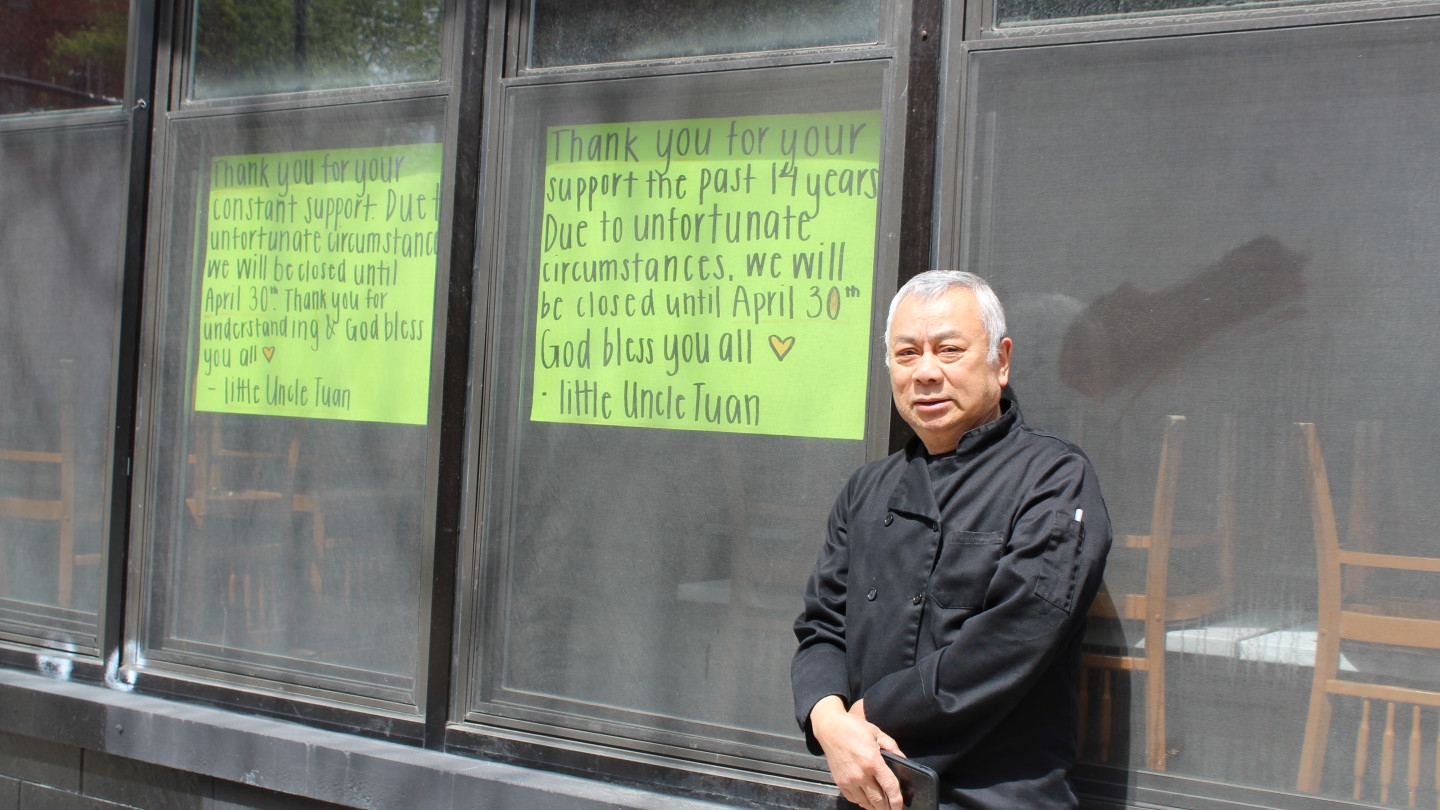 Thank you for your
constant support. Due t
unfortunate circumstance
we will be closed until
April 30th. Thank you for
understanding & God bless
you all
- little Uncle Tuan
Thank you for your
support the past 14 years
Due to unfortunate
circumstances, we will
be closed until April 30th
God bless you all
- little Uncle Tuan